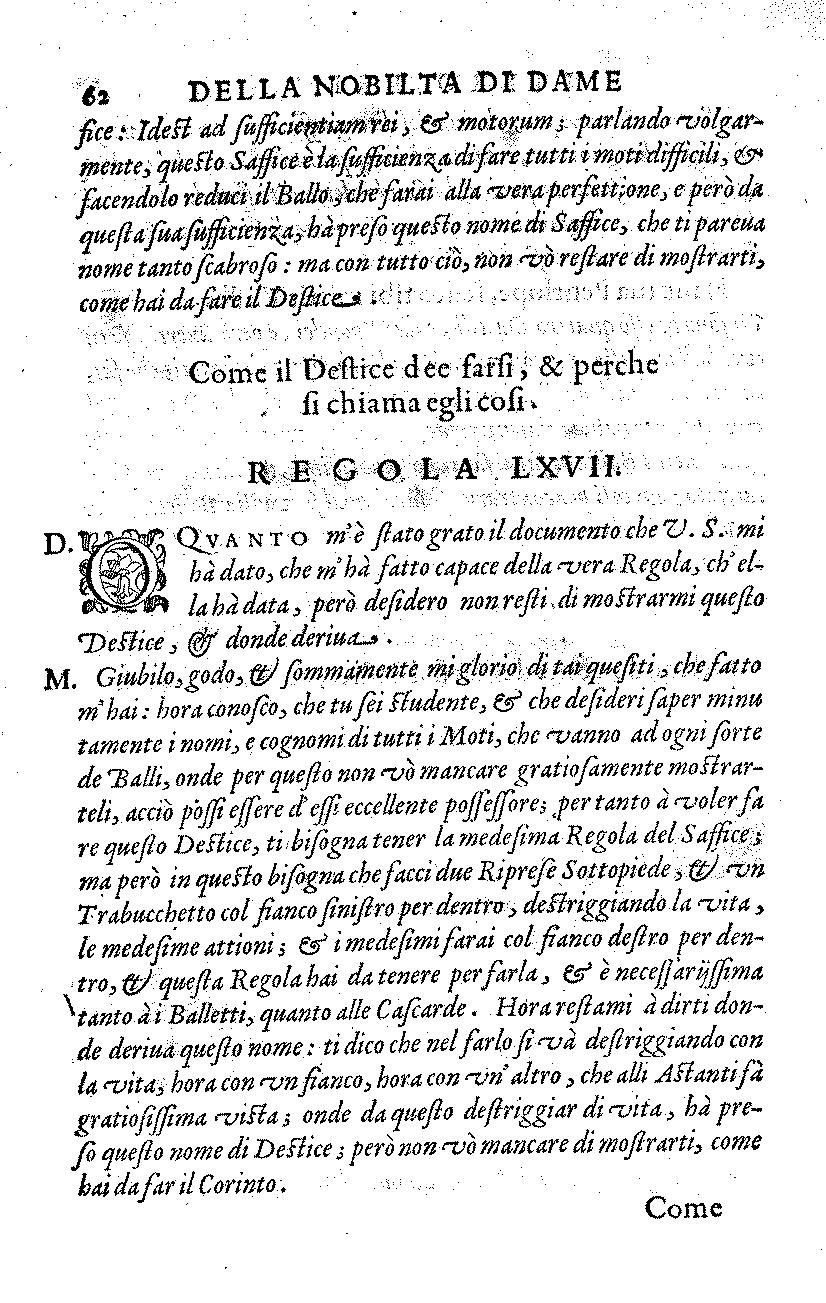 62 DELLA NOBILTA DI DAME
fice: Idest ad sufficientiam rei, & motorum; parlando volgar-
mente, questo Saffice è la sufficienza di fare tutti i moti difficili, &
facendolo reduci il Ballo, che farai alla vera perfettione, e però da
questa sua sufficienza, hà preso questo nome di Saffice, che ti pareua
nome tanto scabroso: ma con tutto ciò, non vò restare di mostrarti,
come hai da fare il Destice.
Come il Destice dee farsi, & perche
si chiama egli cosi.
REGOLA LXVII.
D. O QVANTO m'è stato grato il documento che V. S. mi
hà dato, che m'hà fatto capace della vera Regola, ch'el-
la hà data, però desidero non resti di mostrarmi questo
Destice, & donde deriua.
M. Giubilo, godo, & sommamente mi glorio di tai quesiti, che fatto
m'hai: hora conosco, che tu sei studente, & che desideri saper minu
tamente i nomi, e cognomi di tutti i Moti, che vanno ad ogni sorte
de Balli, onde per questo non vò mancare gratiosamente mostrar-
teli, acciò possi essere d'essi eccellente possessore; per tanto à voler fa
re questo Destice, ti bisogna tener la medesima Regola del Saffice;
ma però in questo bisogna che facci due Riprese Sottopiede, & vn
Trabucchetto col fianco sinistro per dentro, destriggiando la vita,
le medesime attioni; & i medesimi farai col fianco destro per den-
tro, & questa Regola hai da tenere per farla, & è necessarijssima
tanto à i Balletti, quanto alle Cascarde. Hora restami à dirti don-
de deriua questo nome: ti dico che nel farlo si và destriggiando con
la vita, hora con vn fianco, hora con vn'altro, che alli Astanti fà
gratiosissima vista; onde da questo destriggiar di vita, hà pre-
so questo nome di Destice; però non vò mancare di mostrarti, come
hai da far il Corinto.
Come